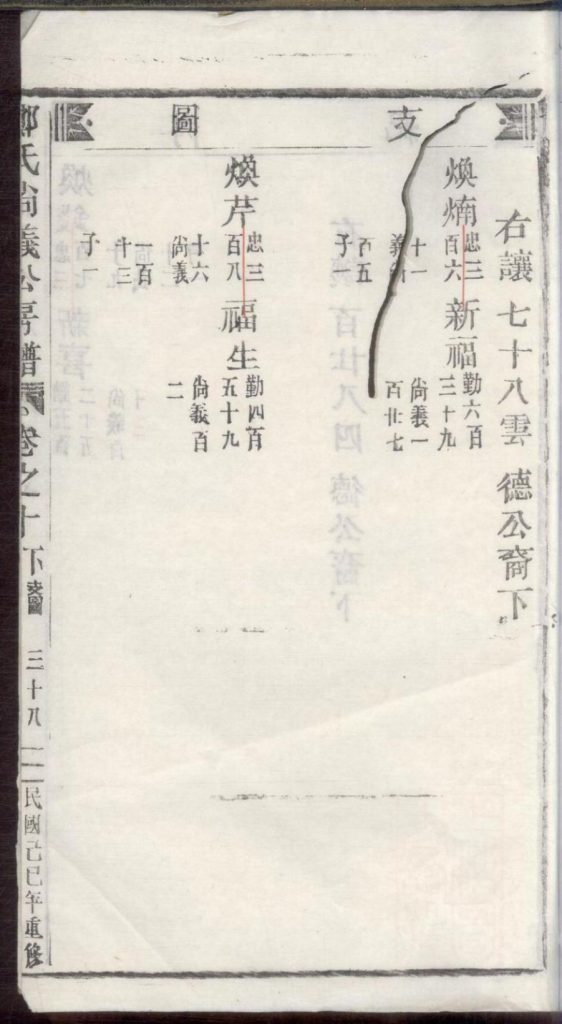 支圖
右讓七十八雲德公裔下
煥煵
忠三
百六
十一
新福
勤六百
三十九
尙義一
百廿七
子一
煥芹
忠三
百八
十六
尙義
一百
廿三
子一
福生
勤四百
五十九
尙義百
二
鄭氏尙義公房譜
卷之十下
支圖
三十八
民國己巳年重修